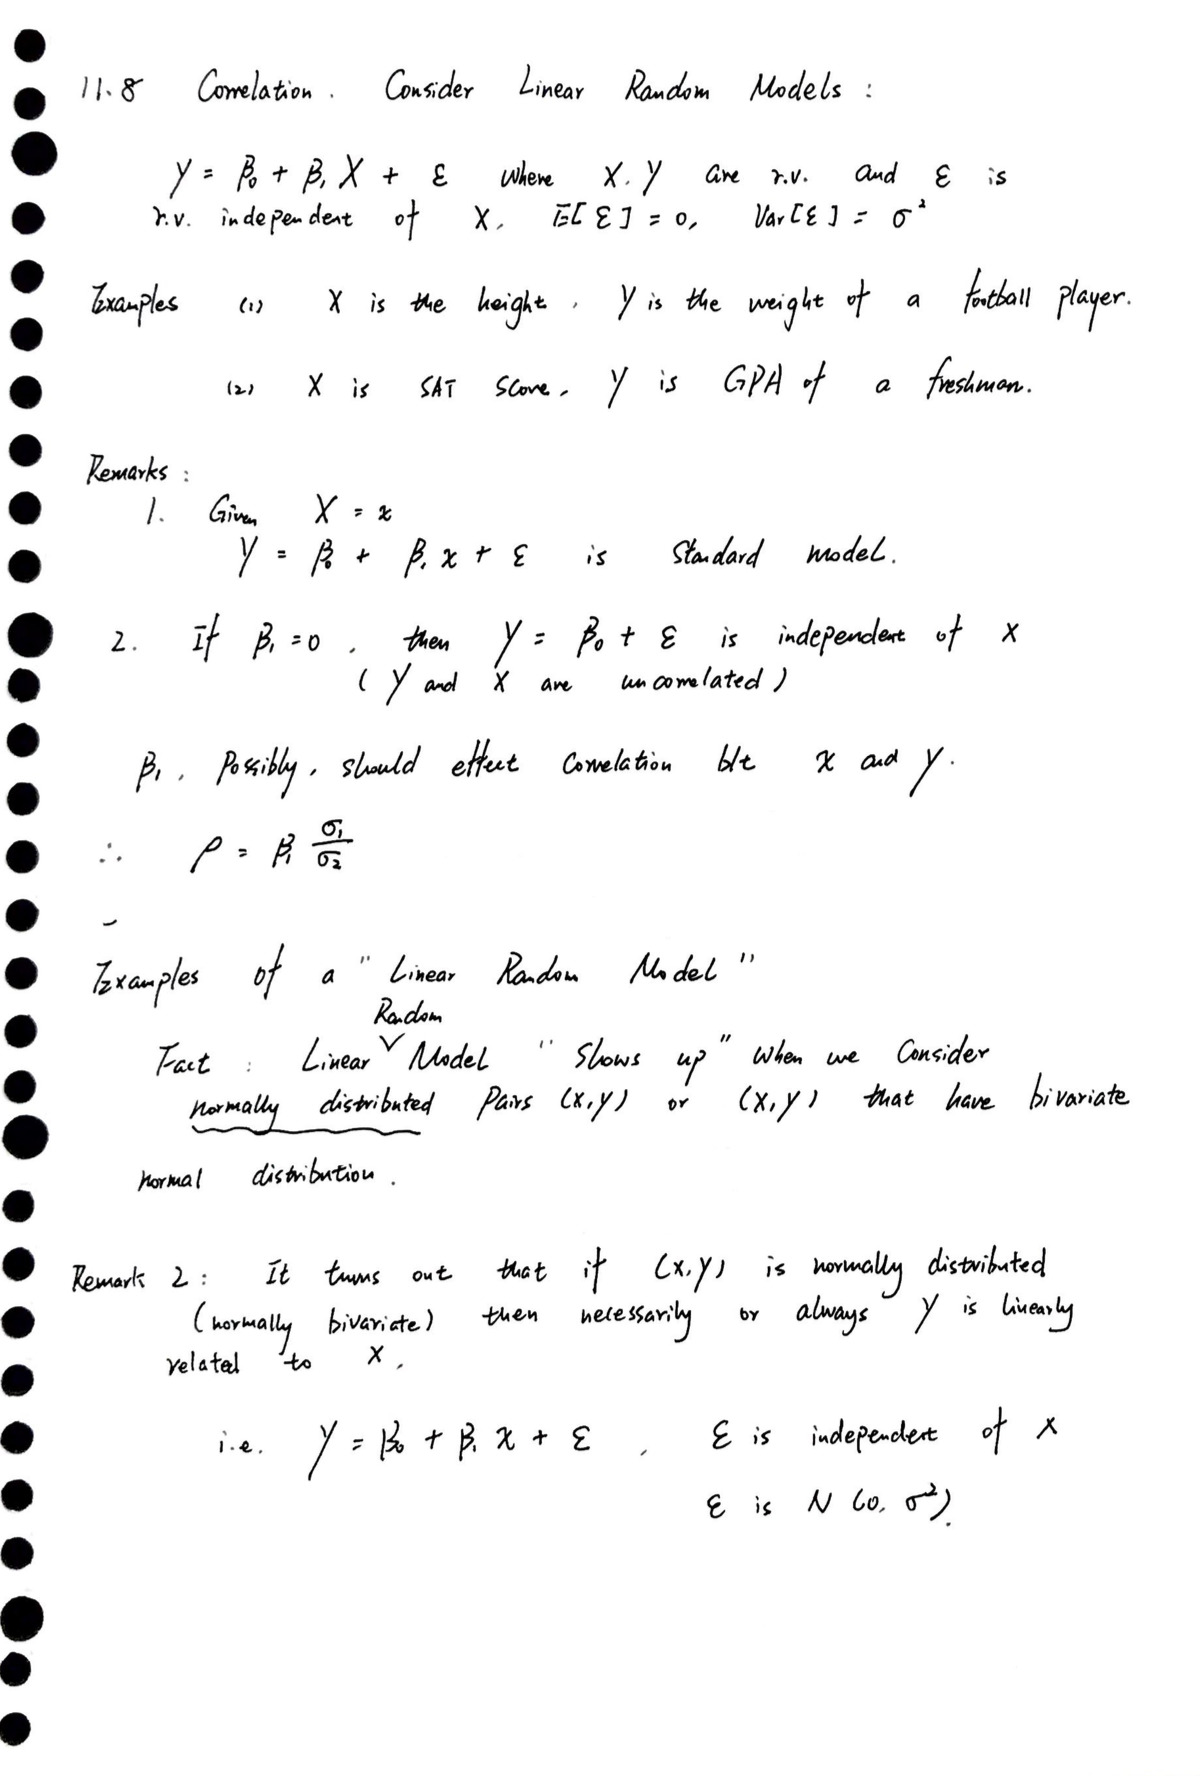 11.8 Correlation. Consider Linear Random Models :
Y = β₀ + β₁ X + ε where X, Y are r.v. and ε is
r.v. independent of X, E[ε] = 0, Var[ε] = σ²
Examples (1) X is the height, Y is the weight of a football player.
(2) X is SAT Score, Y is GPA of a freshman.
Remarks :
1. Given X = x
Y = β₀ + β₁ x + ε is Standard model.
2. If β₁ = 0, then Y = β₀ + ε is independent of X
( Y and X are uncorrelated )
β₁, Possibly, should effect Correlation b/t X and Y.
∴ ρ = β₁ σ₁/σ₂
Examples of a "Linear Random Model"
Random
Fact : Linear ∨ Model "Shows up" when we Consider
normally distributed Pairs (X,Y) or (X,Y) that have bivariate
normal distribution.
Remark 2 : It turns out that if (X,Y) is normally distributed
(normally bivariate) then necessarily or always Y is linearly
related to X,
i.e. Y = β₀ + β₁ X + ε, ε is independent of X
ε is N(0, σ²).